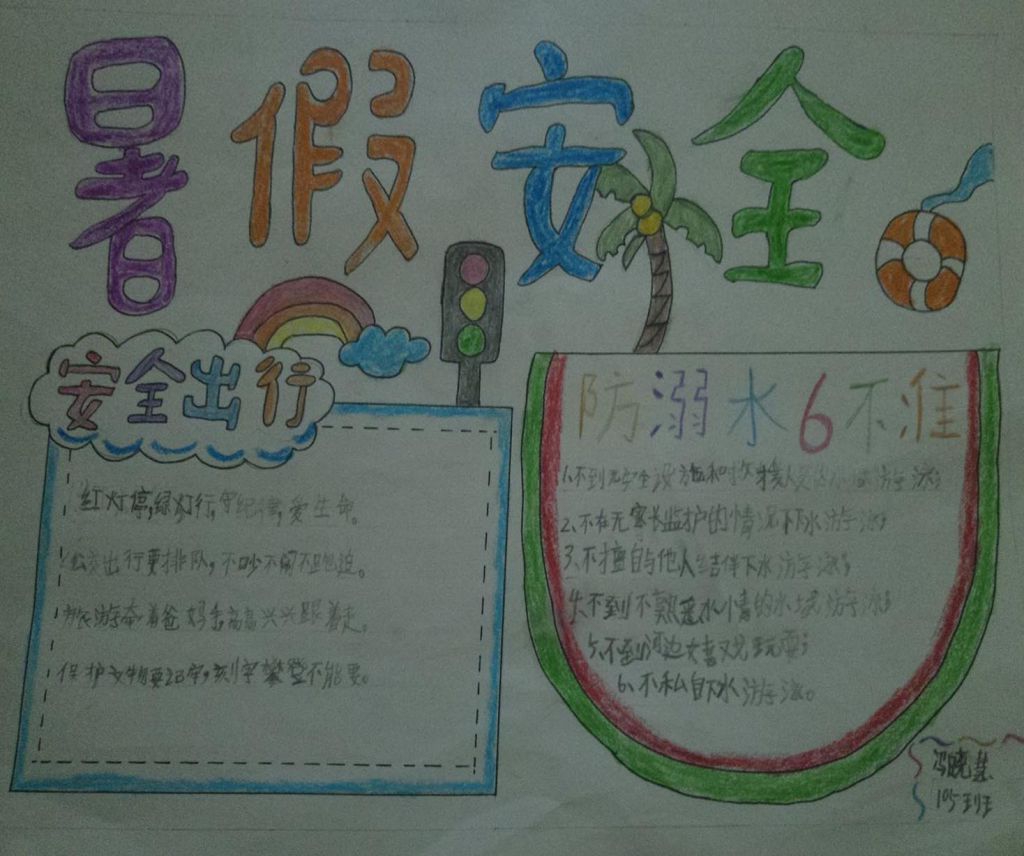 暑假安全
安全出行
红灯停,绿灯行,守纪律,爱生命。
公交出行要排队,不吵不闹不追。
旅游牵着爸妈手高高兴兴跟着走。
保护文物要牢,刻字攀登不能要。
防溺水6不准
1.不到无安全设施和救援人员的水域游泳;
2、不在无家长监护的情况下下水游泳;
3、不擅自与他人结伴下水游泳;
4.不到不熟悉水情的水域游泳;
5.不到河边嬉戏玩耍;
6、不私自下水游泳。
冯晓
105班